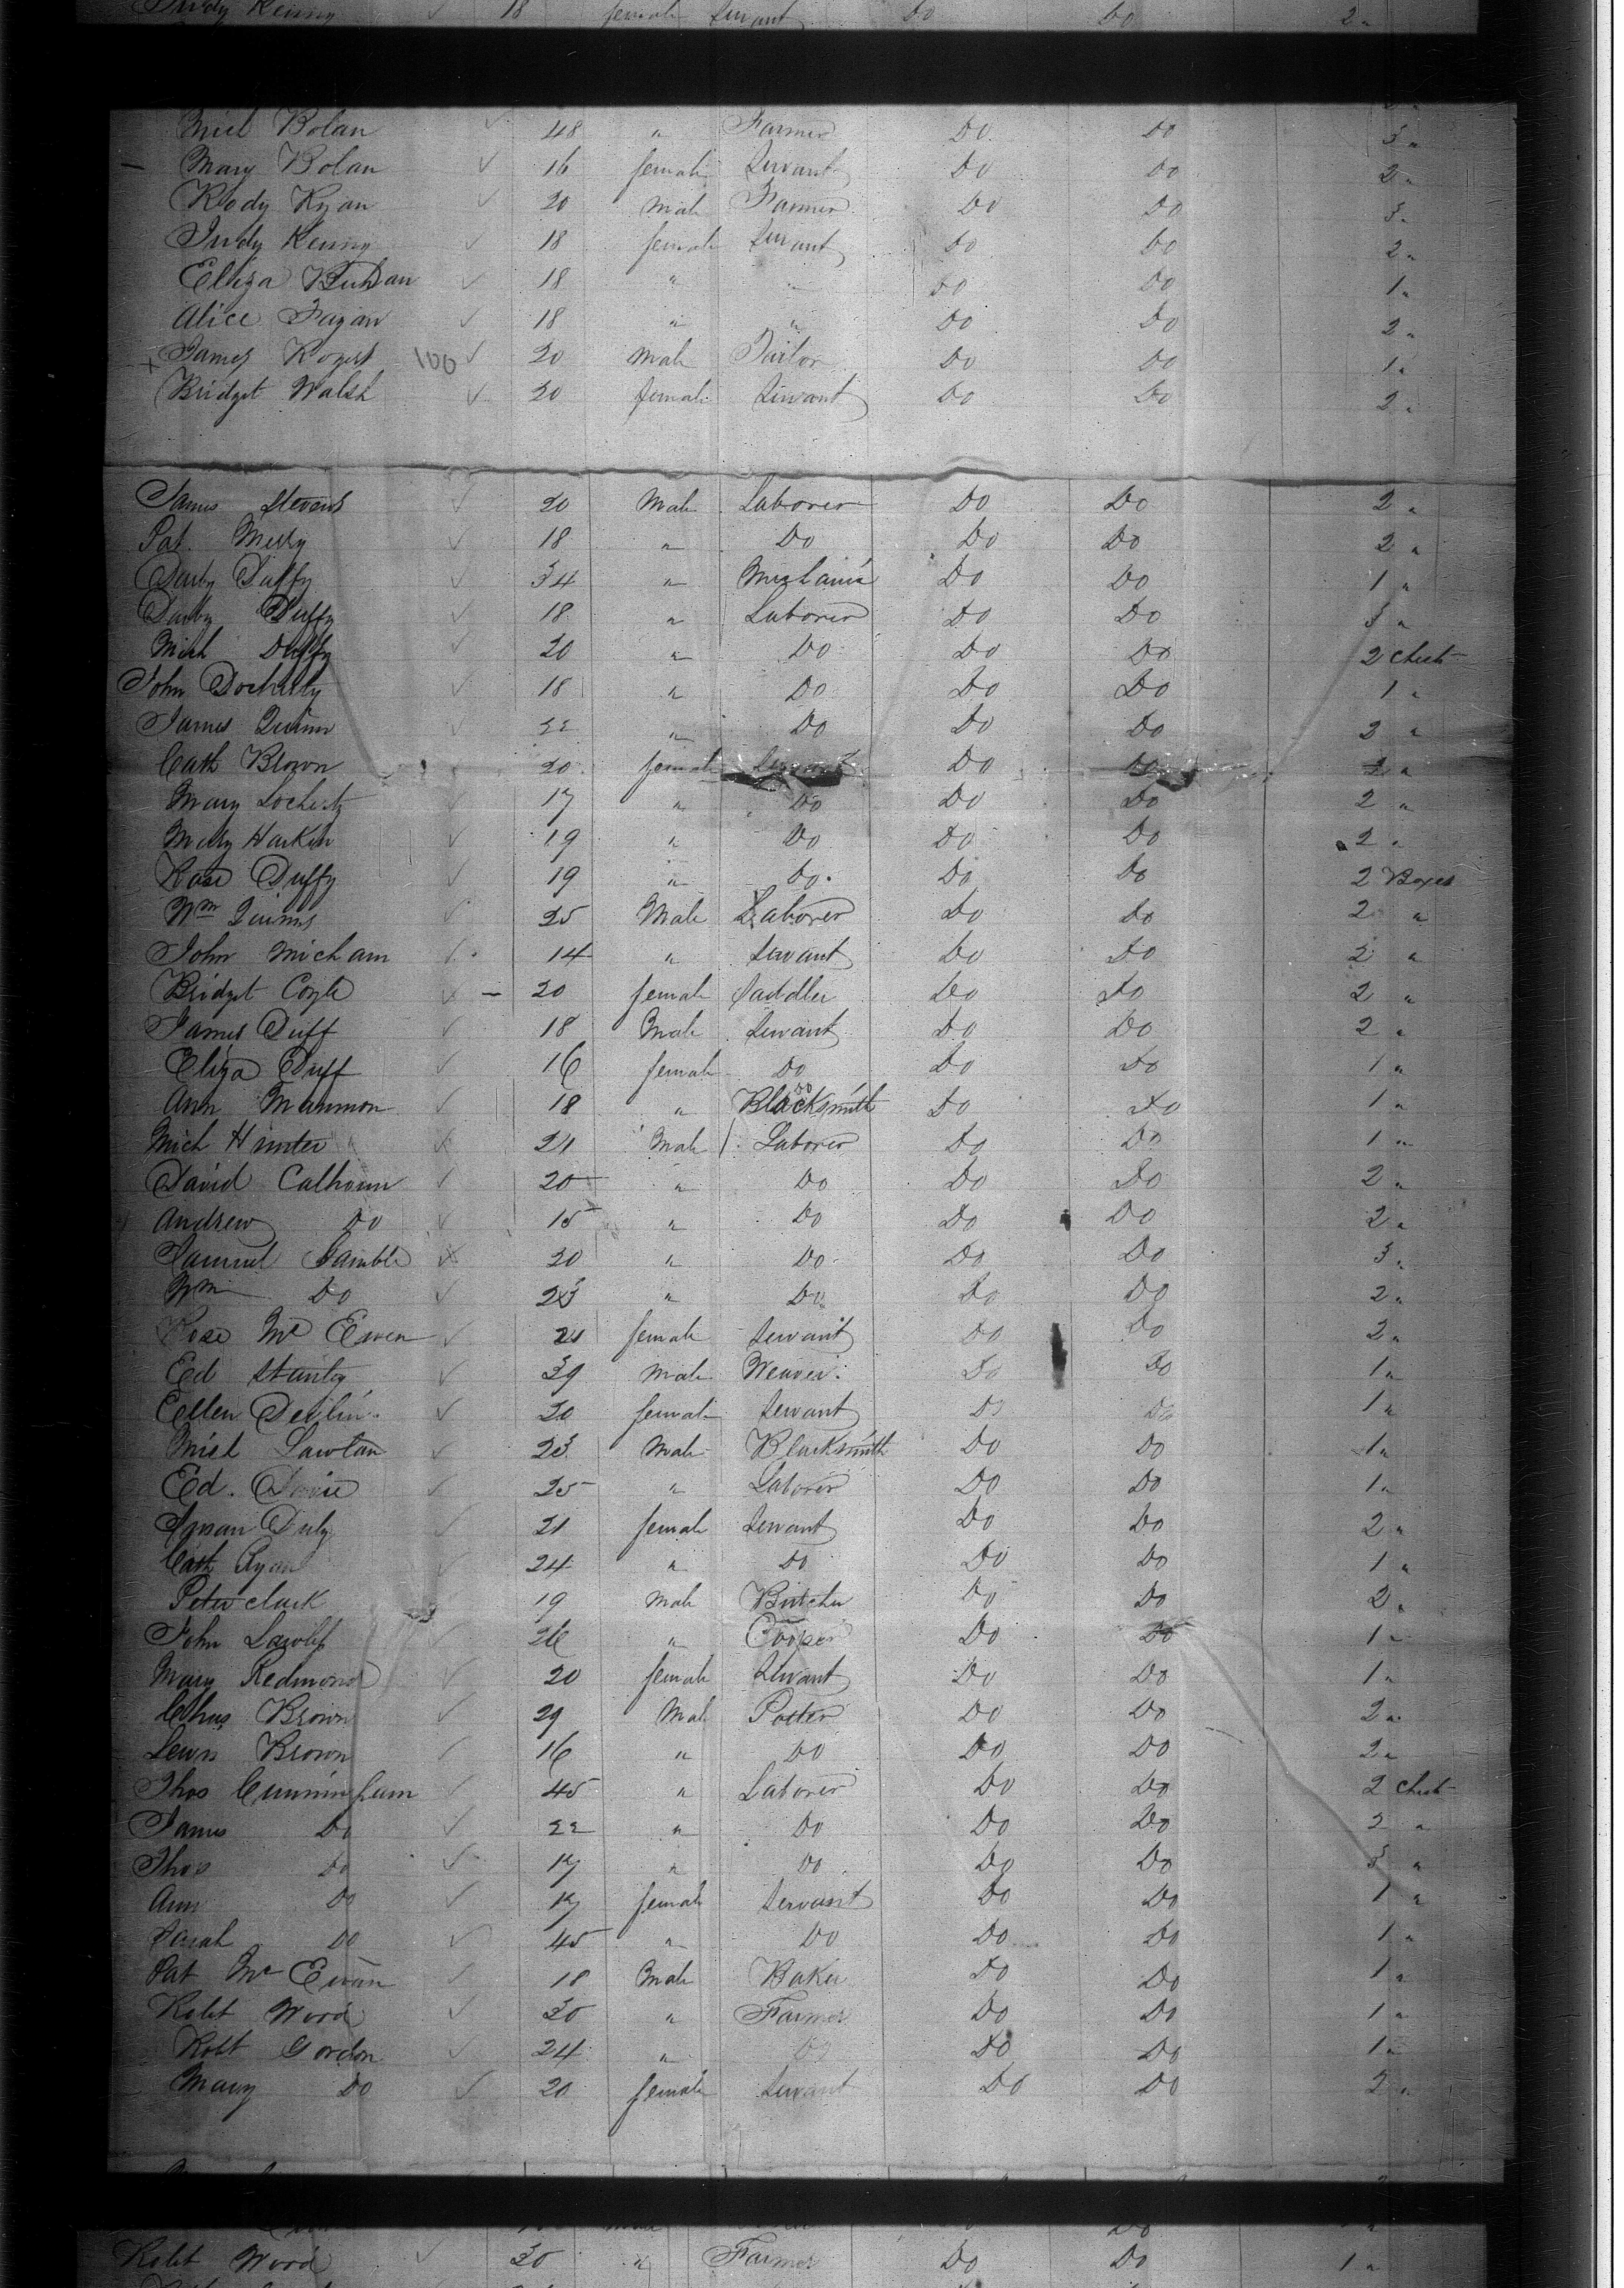 Judy Kenny 18 female Servant Do Do 2 "
Mich Bolan 48 " Farmer Do Do 3 "
Mary Bolan 16 female Servant Do Do 2 "
Rody Ryan 20 Male Farmer Do Do 3 "
Judy Kenny 18 female Servant Do Do 2 "
Eliza 18 " " Do Do 1 "
Alice Fagan 18 " " Do Do 2 "
James 100 20 Male Tailor Do Do 1 "
Bridget Walsh 20 female Servant Do Do 2 "
James Stevens 20 Male Laborer Do Do 2 "
Pat. 18 " Do Do Do 2 "
Darby Duffy 34 " Mechanic Do Do 1 "
Darby Duffy 18 " Laborer Do Do 3 "
Mich Duffy 20 " Do Do Do 2 Chests
John Docherty 18 " Do Do Do 1 "
James Quinn 22 " Do Do Do "
Cath Brown 20 female Servant Do Do "
Mary Docherty 17 " Do Do Do 2 "
Harkin 19 " Do Do Do 2 "
Rose Duffy 19 " Do. Do Do 2 Boxes
Wm 25 Male Laborer Do Do 2 "
John Micham 14 " Servant Do Do 2 "
Bridget Coyle 20 female Saddler Do Do 2 "
James Duff 18 Male Servant Do Do 2 "
Eliza Duff 16 female Do Do Do 1 "
Do
Ann 18 " Blacksmith Do Do 1 "
Mich Hunter 21 Male Laborer Do Do 1 "
David Calhoun 20 " Do Do Do 2 "
Andrew Do 15 " Do Do Do 2 "
Samuel Gamble 20 " Do Do Do 3 "
Wm Do 23 " Do Do Do 2 "
Rose Mc Ewen 21 female Servant Do Do 2 "
Ed 39 Male Weaver Do Do 1 "
Ellen Devlin 20 female Servant Do Do 1 "
Mich Lawlan 23 Male Blacksmith Do Do 1 "
Ed. 25 " Laborer Do Do 1 "
21 female Servant Do Do 2 "
Cath Ryan 24 " Do Do Do 1 "
Peter Clark 19 Male Butcher Do Do 2 "
John 26 " Cooper Do Do 1 "
Mary Redmond 20 female Servant Do Do 1 "
Chas Brown 29 Male Porter Do Do 2 "
Lewis Brown 16 " Do Do Do 2 "
Thos Cunningham 45 " Laborer Do Do 2 Chests
James Do 22 " Do Do Do 2 "
Thos Do 17 " Do Do Do 3 "
Ann Do 17 female Servant Do Do 1 "
Sarah Do 45 " Do Do Do 1 "
Pat Mc Ewan 18 Male Baker Do Do 1 "
Robt Wood 30 " Farmer Do Do 1 "
Robt Gordon 24 " Do Do Do 1 "
Mary Do 20 female Servant Do Do 2 "
Robt Wood 30 " Farmer Do Do 1 "